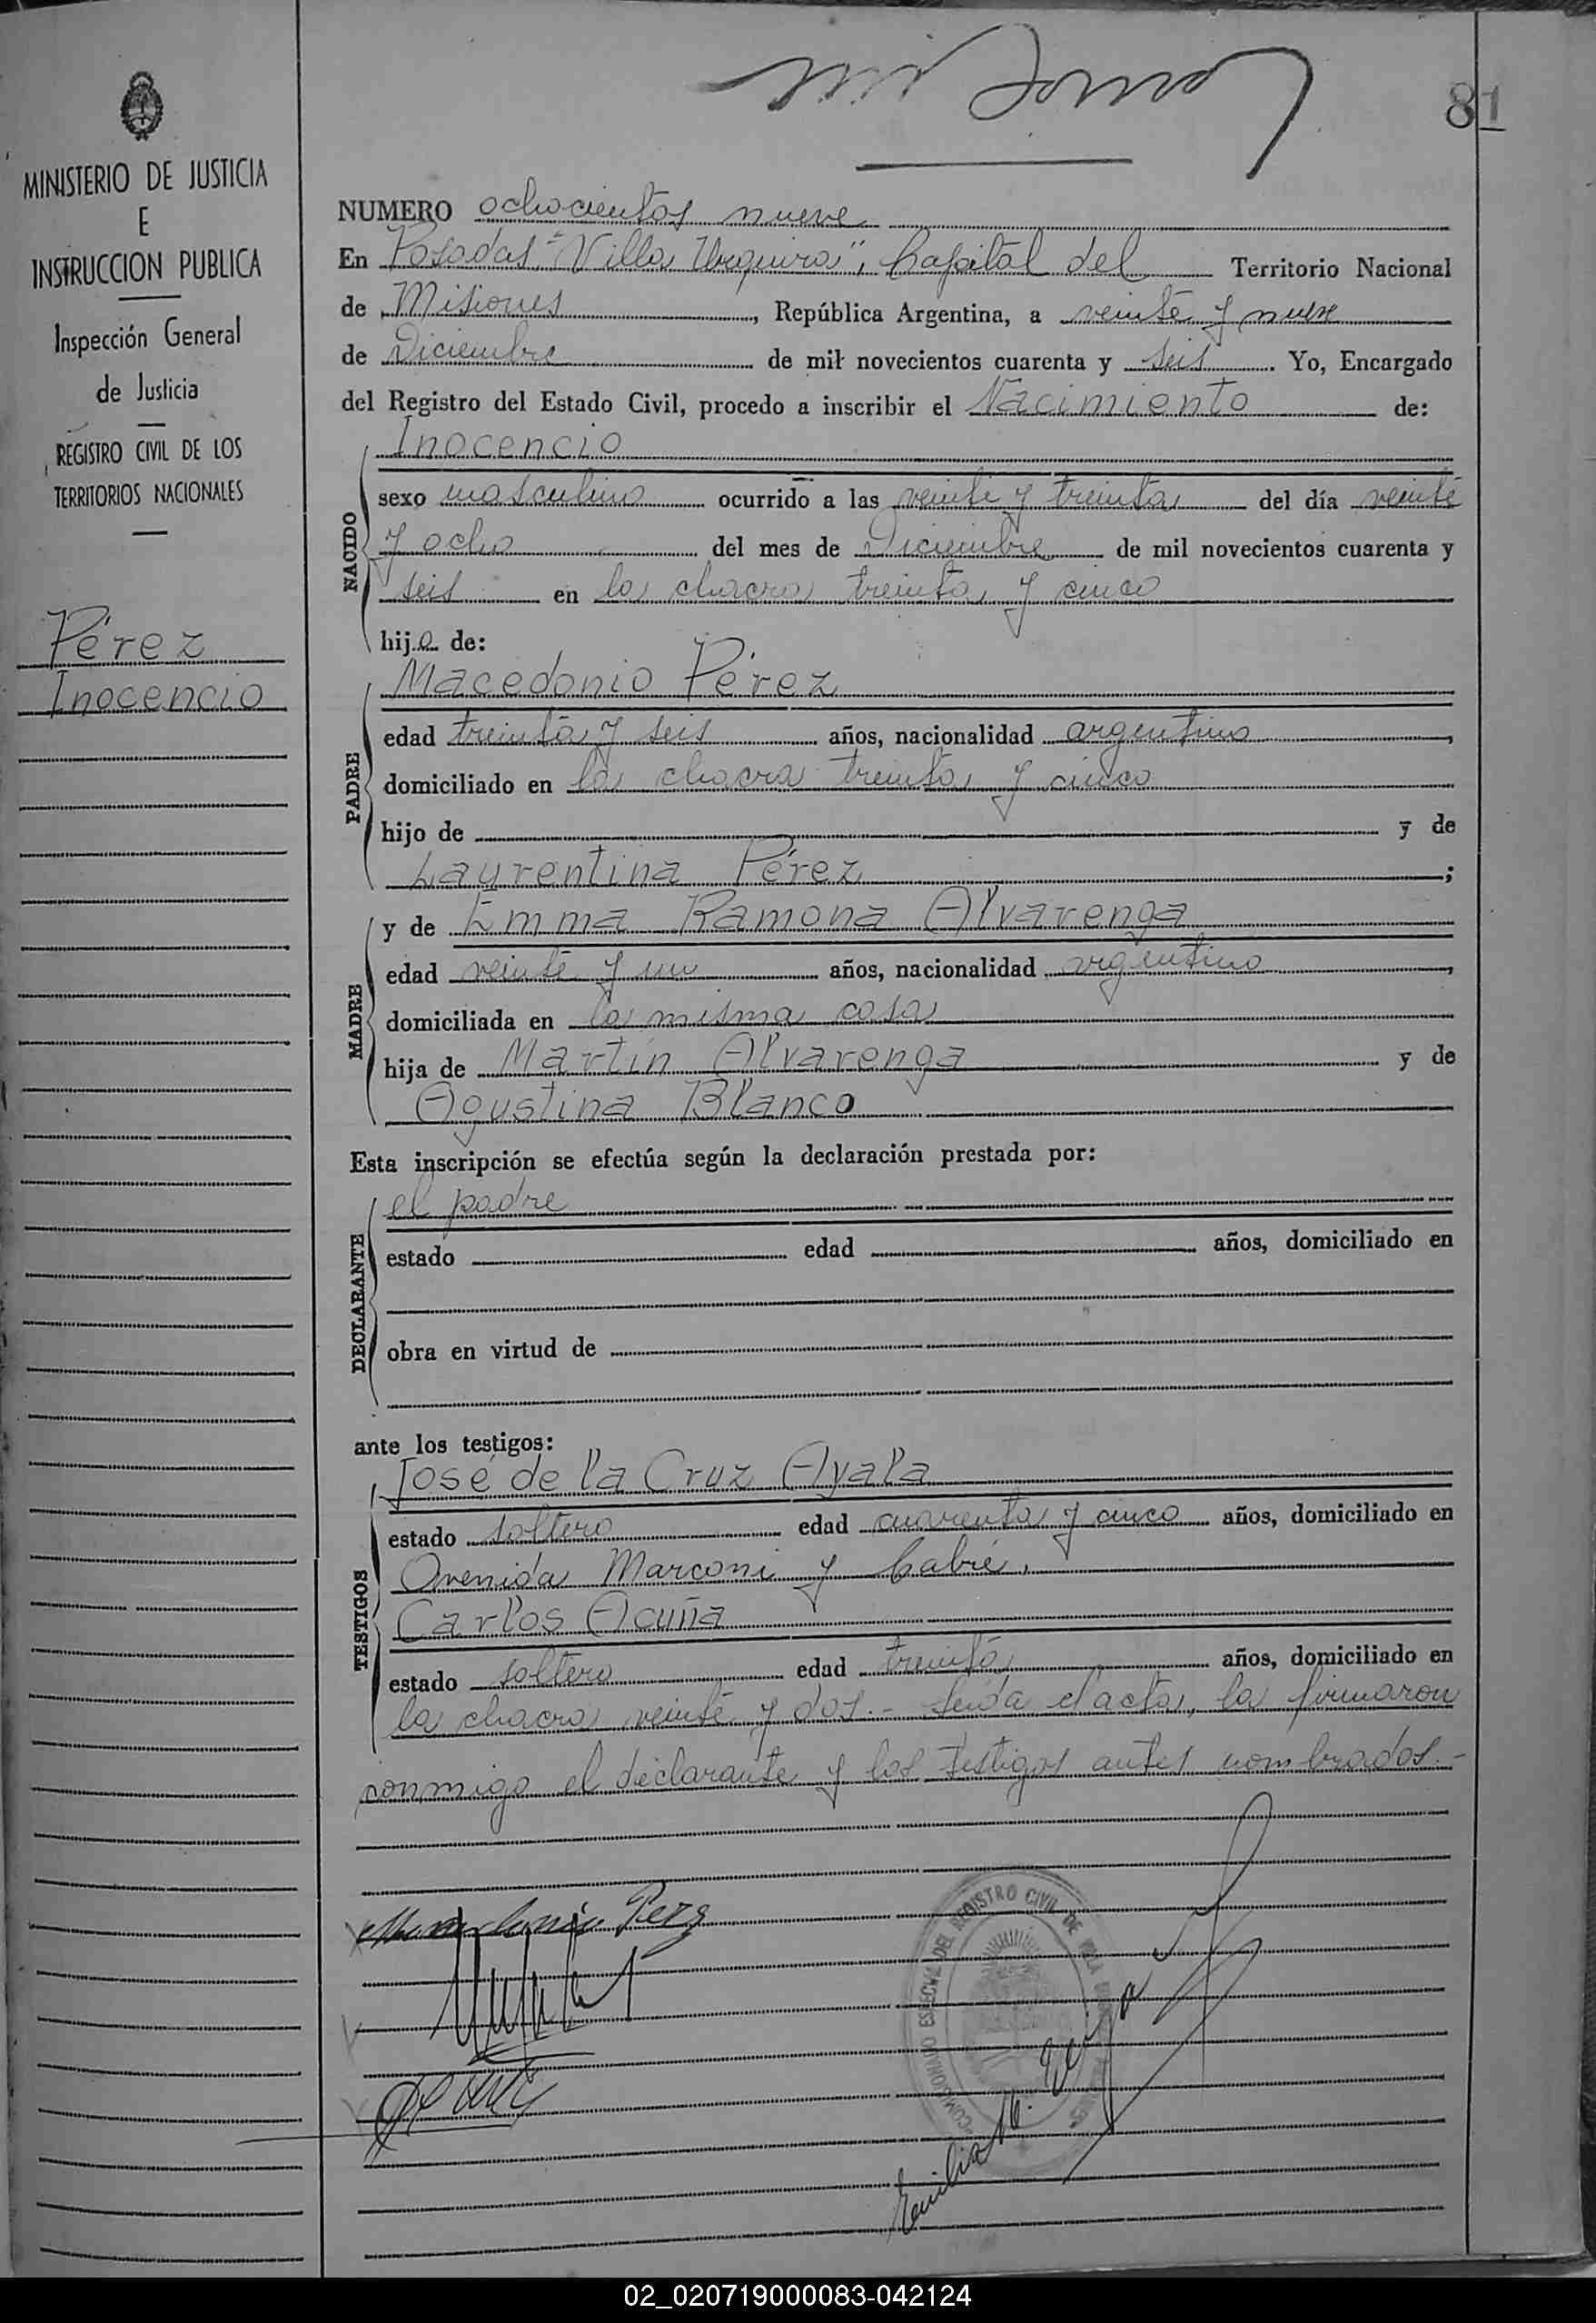 81
MINISTERIO DE JUSTICIA
E
INSTRUCCION PUBLICA
Inspección General
de Justicia
REGISTRO CIVIL DE LOS
TERRITORIOS NACIONALES
Pérez
Inocencio
NUMERO ochocientos nueve
En Posadas "Villa Urquiza", Capital del Territorio Nacional
de Misiones, República Argentina, a veinte y nueve
de Diciembre de mil novecientos cuarenta y seis. Yo, Encargado
del Registro del Estado Civil, procedo a inscribir el Nacimiento de:
NACIDO
Inocencio
sexo masculino ocurrido a las veinte y treinta del día veinte
y ocho del mes de Diciembre de mil novecientos cuarenta y
seis en la chacra treinta y cinco
hijo de:
PADRE
Macedonio Pérez
edad treinta y seis años, nacionalidad argentino,
domiciliado en la chacra treinta y cinco
hijo de y de
Laurentina Pérez;
MADRE
y de Emma Ramona Alvarenga
edad veinte y un años, nacionalidad argentina,
domiciliada en la misma casa
hija de Martín Alvarenga y de
Agustina Blanco
Esta inscripción se efectúa según la declaración prestada por:
DECLARANTE
el padre
estado edad años, domiciliado en
obra en virtud de
ante los testigos:
TESTIGOS
José de la Cruz Ayala
estado soltero edad cuarenta y cinco años, domiciliado en
Avenida Marconi y Cabré.
Carlos Acuña
estado soltero edad treinta años, domiciliado en
la chacra veinte y dos.- Leída el acta, la firmaron
conmigo el declarante y los testigos antes nombrados.-
Perez
REGISTRO CIVIL DE
Emilio
02_020719000083-042124